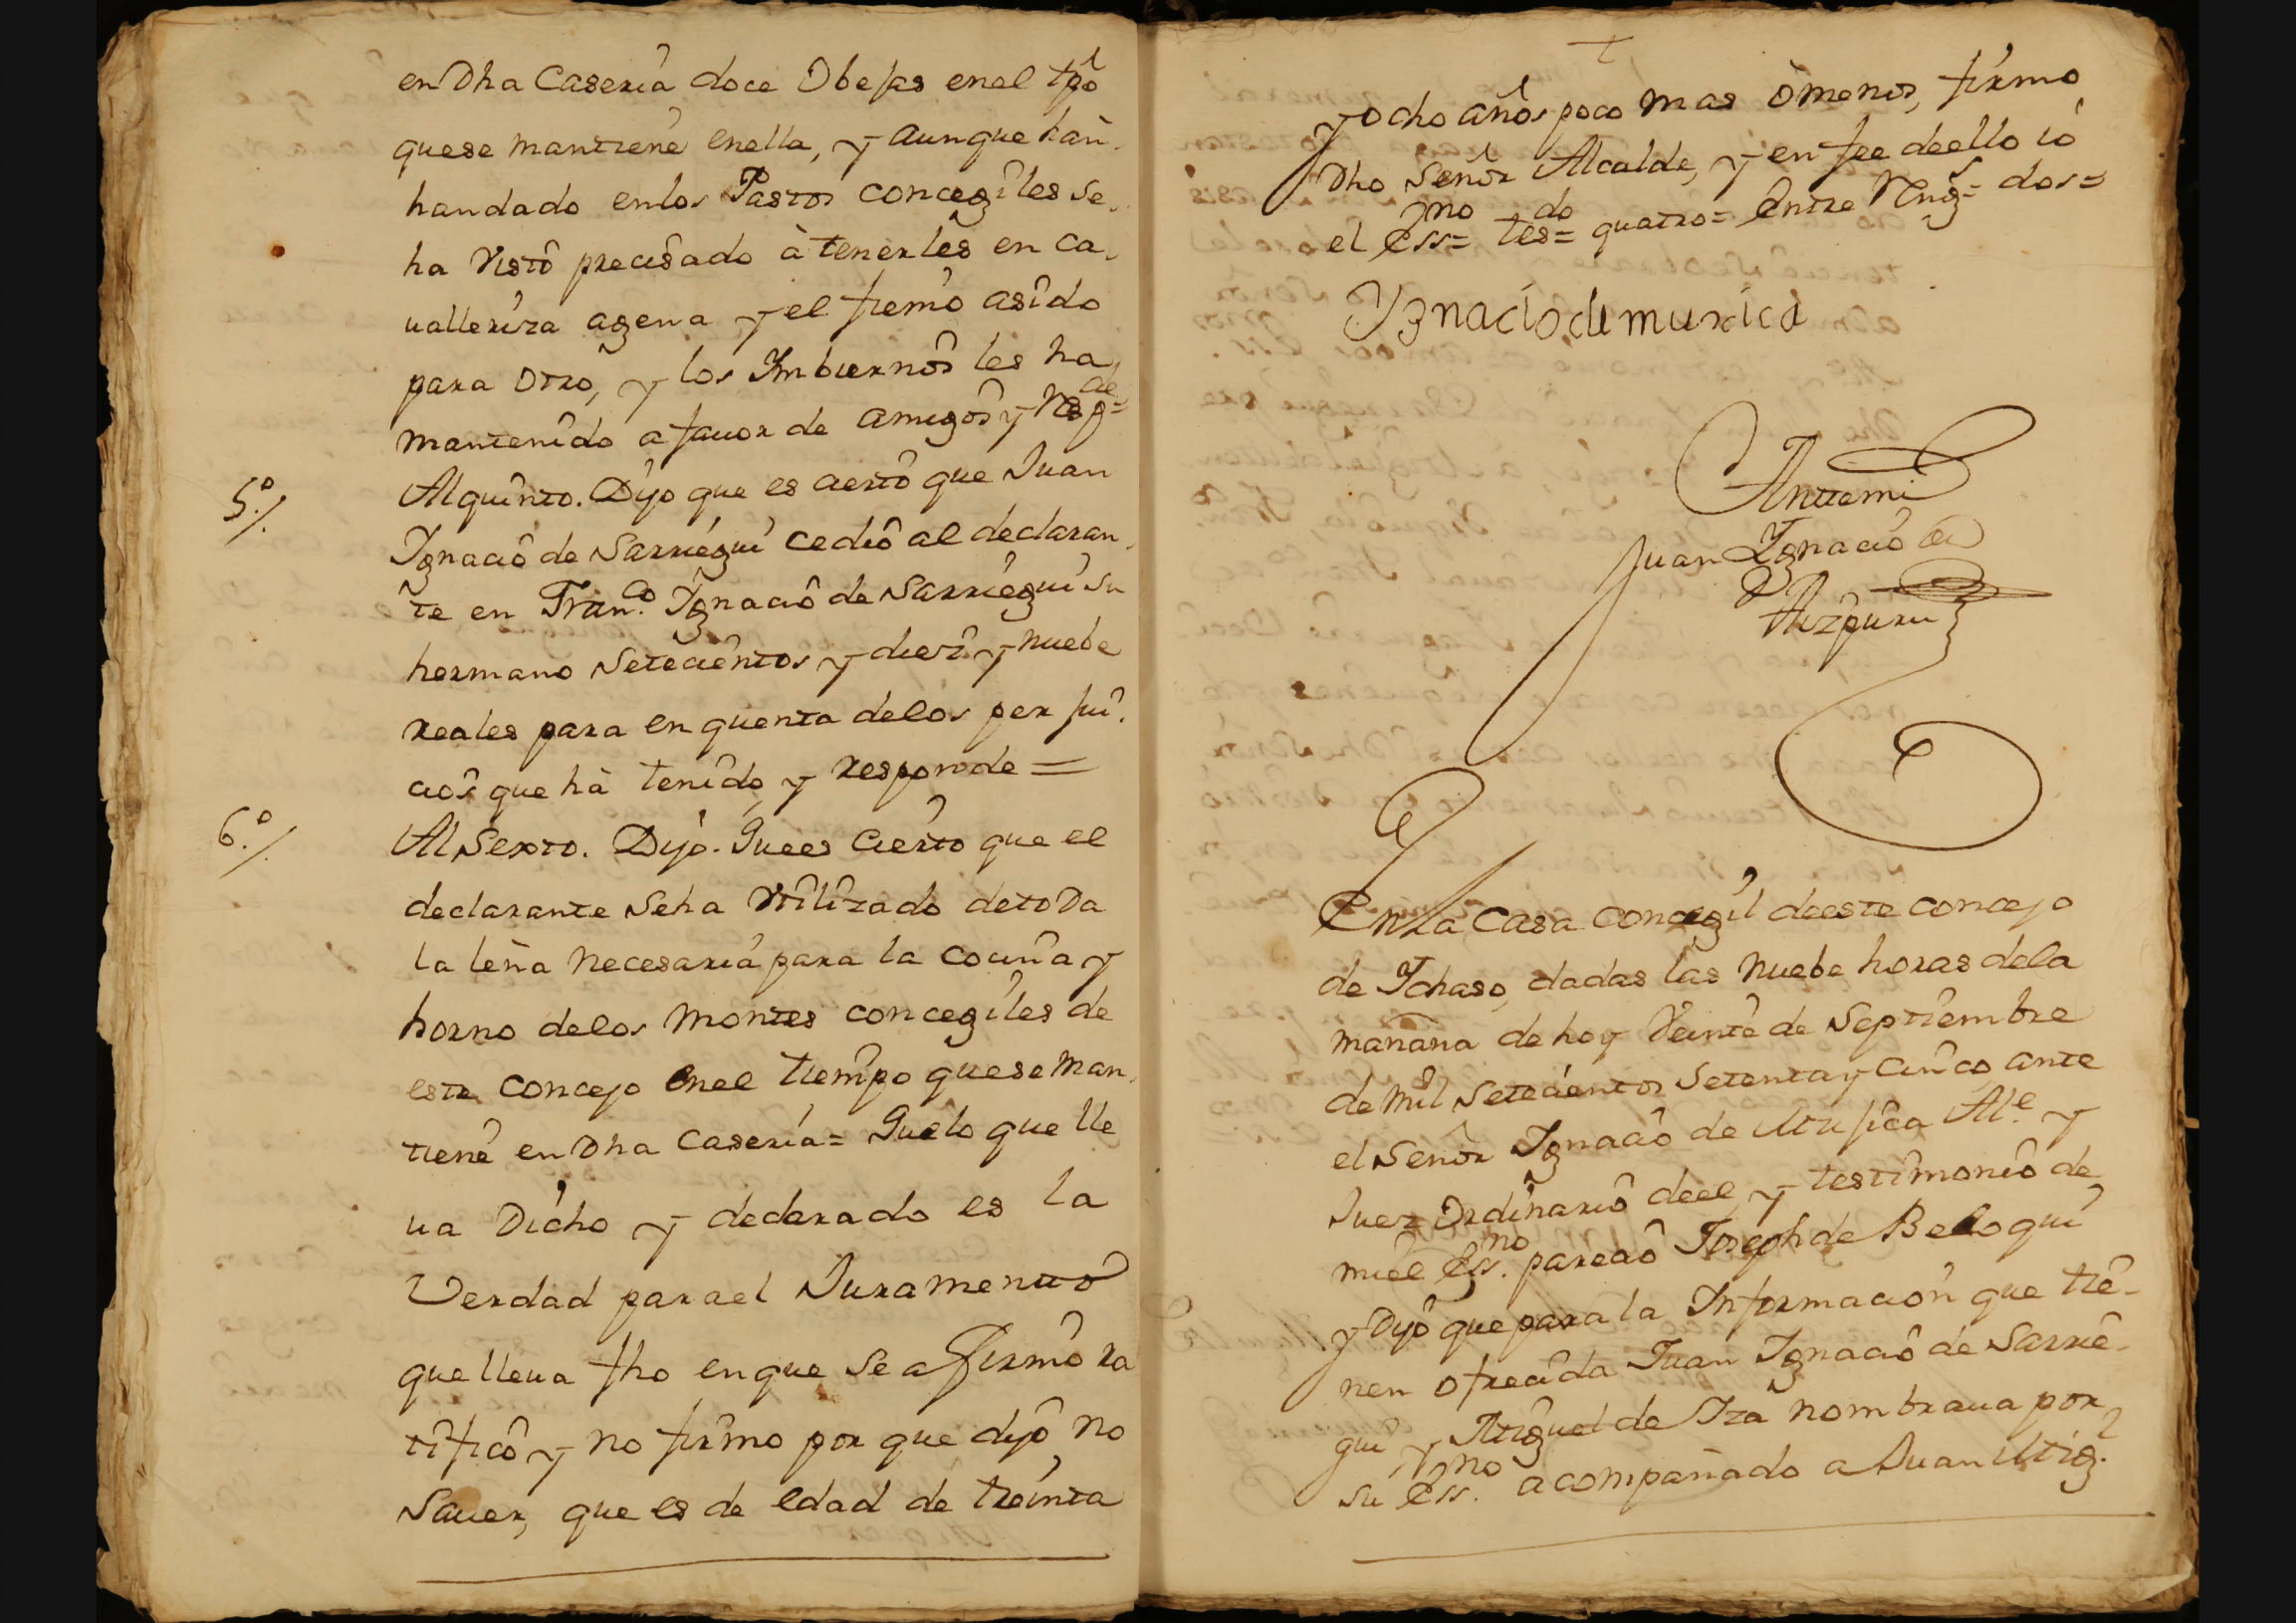 en Dha Caseria doce Obejas en el tpo
que se mantiene en ella, y aunque han
handado en los Pastos concegiles se
ha Visto precisado à tenerles en ca
ualleriza agena y el fiemo asido
para otro, y los Imbiernos les ha
mantenido a fauor de amigos y Resp.de=
5.º/. Al quinto. Dijo que es cierto que Juan
Ignacio de Sarriegui cedio al declaran
te en Fran.co Ignacio de Sarriegui su
hermano Setecientos y diez y nuebe
reales para en quenta de los perjui
cios que hà tenido, y responde =
6.º/. Al Sexto. Dijo. Que es Cierto que el
declarante se ha Vtilizado de toda
la leña Necesaria para la cocina y
horno de los Montes concegiles de
este concejo en el tiempo que se Man
tiene en Dha Caseria = Que lo que lle
ua Dicho y declarado es la
Verdad para el Juramento
que lleua fho en que se afirmo ra
tifico y no firmo por que dijo no
Sauer, que es de edad de treinta
y ocho años poco mas ò menos, firmo
Dho Señor Alcalde, y en fee de ello io
el Ess.no = tes.do = quatro = Entre Rengs = dos =
Ygnacio de muxica
Anttemi
Juan Ignacio de
Aizpuru
En la Casa Concegil de este concejo
de Ichaso, dadas las nuebe horas de la
mañana de hoy Veinte de Septiembre
de mil Setecientos Setenta y Cinco, ante
el Señor Ignacio de Mujica Al.e y
Juez Ordinario de el, y testimonio de
mi el Ess.no parecio Joseph de Beloqui
y Dijo que para la Informacion que tie-
nen ofrecida Juan Ignacio de Sarrie-
gui y Miguel de Iza nombraua por
su Ess.no acompañado a Juan Mig.l